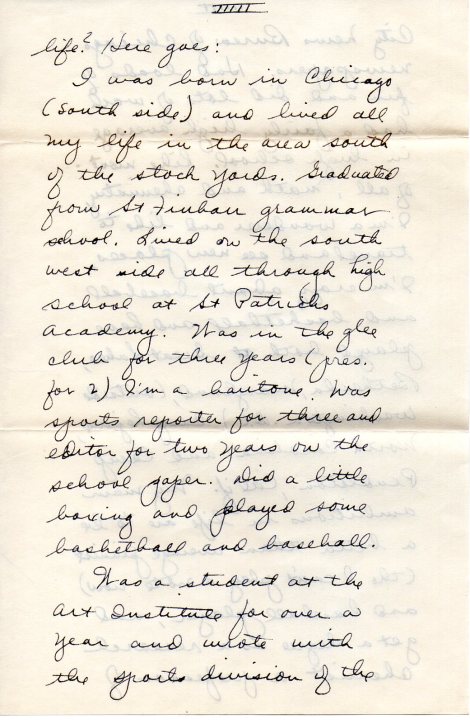 IIIII
life? Here goes:
I was born in Chicago
(South side) and lived all
my life in the area south
of the stock yards. Graduated
from St Finbarr grammar
school. Lived on the south
west side all through high
school at St Patricks
Academy. Was in the glee
club for three years (pres.
for 2) I'm a baritone. Was
sports reporter for three and
editor for two years on the
school paper. Did a little
boxing and played some
basketball and baseball.
Was a student at the
Art Institute for over a
year and wrote with
the sports division of the